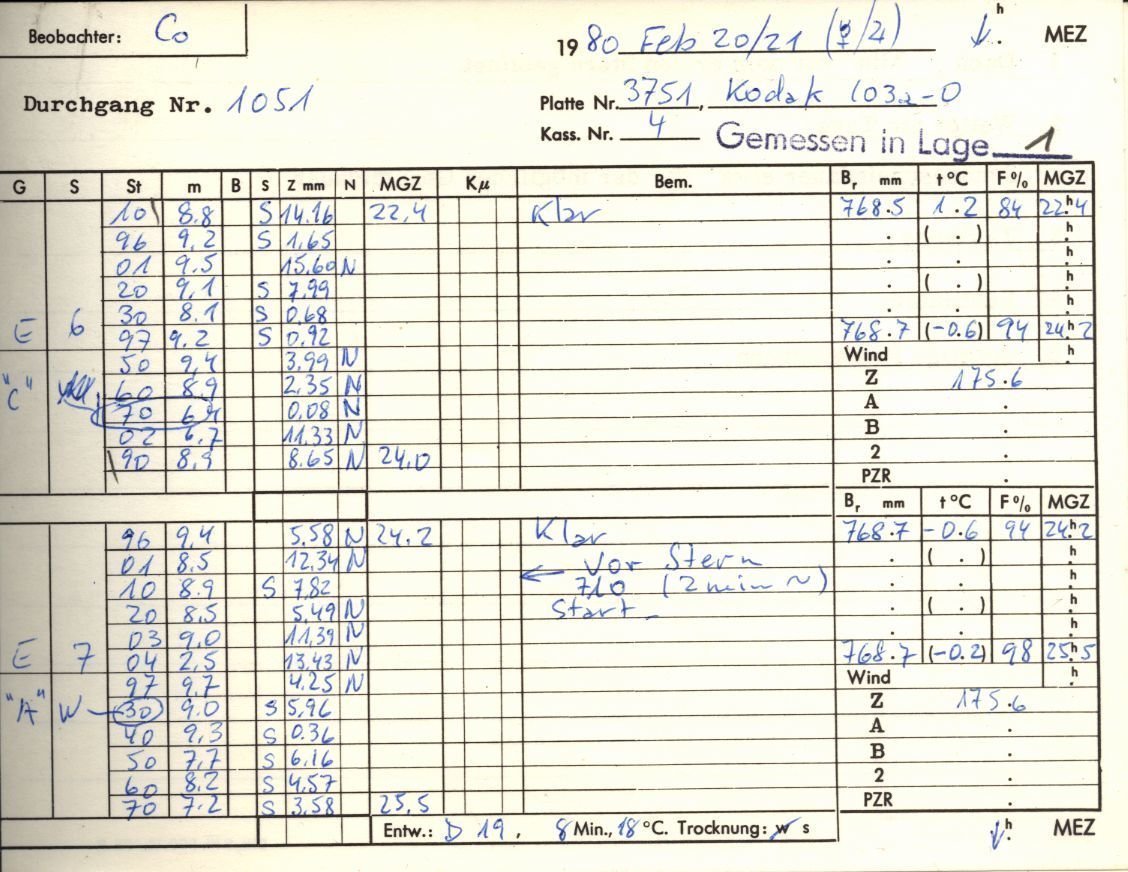 Beobachter: Co
1980 Feb 20/21 (☿/♃) h MEZ
Durchgang Nr. 1051
Platte Nr. 3751, Kodak 103a-O
Kass. Nr. 4
Gemessen in Lage 1
G S St m B S Z mm N MGZ Kμ Bem. Br mm t °C F % MGZ
10 8.8 S 14.16 22,4 Klar 768.5 1.2 84 22h4
96 9,2 S 1,65 ( . ) h
01 9.5 15,60 N h
20 9,1 S 7,99 ( . ) h
30 8.1 S 0,68 h
E 6 97 9.2 S 0,92 768.7 (-0.6) 94 24h2
50 9,4 3,99 N Wind h
"C" 60 8.9 2,35 N Z 175.6
70 0,08 N A .
02 6,7 11,33 N B .
90 8,9 8.65 N 24,0 2 .
PZR .
Br mm t °C F % MGZ
96 9,4 5.58 N 24,2 Klar 768.7 -0.6 94 24h2
01 8,5 12,34 N ← Vor Stern ( . ) h
10 8.9 S 7,82 710 (2 min ~) h
20 8,5 5,49 N Start ( . ) h
03 9,0 11,39 N h
E 7 04 2,5 13,43 N 768.7 (-0.2) 98 25h5
97 9,7 4,25 N Wind h
"A" W 30 9.0 S 5,96 Z 175.6
40 9,3 S 0.36 A .
50 7,7 S 6,16 B .
60 8,2 S 4,57 2 .
70 7.2 S 3,58 25,5 PZR .
Entw.: D 19, 8 Min., 18 °C. Trocknung: w s h MEZ